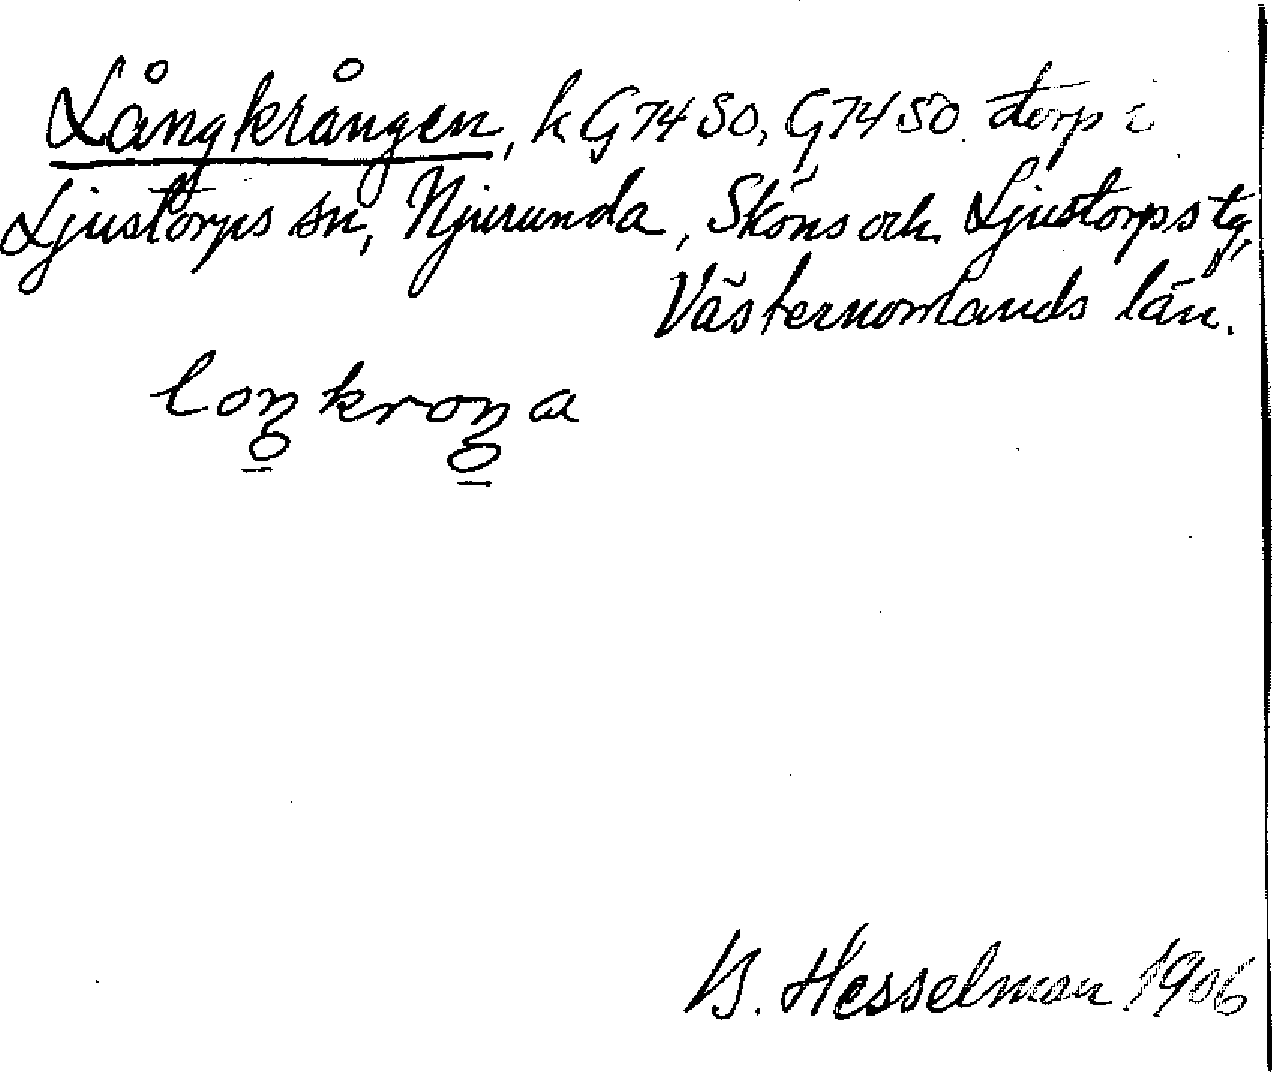 Långkrången, k G7450, G7450 torp i
Ljustorps sn, Njurunda, Sköns och Ljustorps tg,
Västernorrlands län.
loŋkroŋa
B. Hesselman 1906